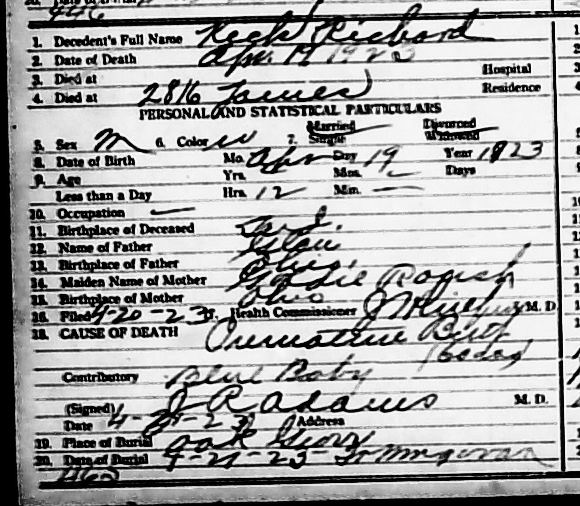 446
1. Decedent's Full Name Keck Richard
2. Date of Death Apr. 19 1923
Hospital
3. Died at
4. Died at 2816 James Residence
PERSONAL AND STATISTICAL PARTICULARS
5. Sex M 6. Color W 7. Married Single Divorced Widowed
8. Date of Birth Mo. Apr Day 19 Year 1923
9. Age Yrs. — Mos. — Days
Less than a Day Hrs. 12 Min. —
10. Occupation —
11. Birthplace of Deceased
12. Name of Father
13. Birthplace of Father Ohio
14. Maiden Name of Mother
15. Birthplace of Mother Ohio
16. Filed 4-20-23 Health Commissioner M. D.
18. CAUSE OF DEATH Premature Birth
Contributory Blue Baby
(Signed) J R Adams M. D.
Date 4- -23 Address
19. Place of Burial Oak Grove
20. Date of Burial 4-21-23